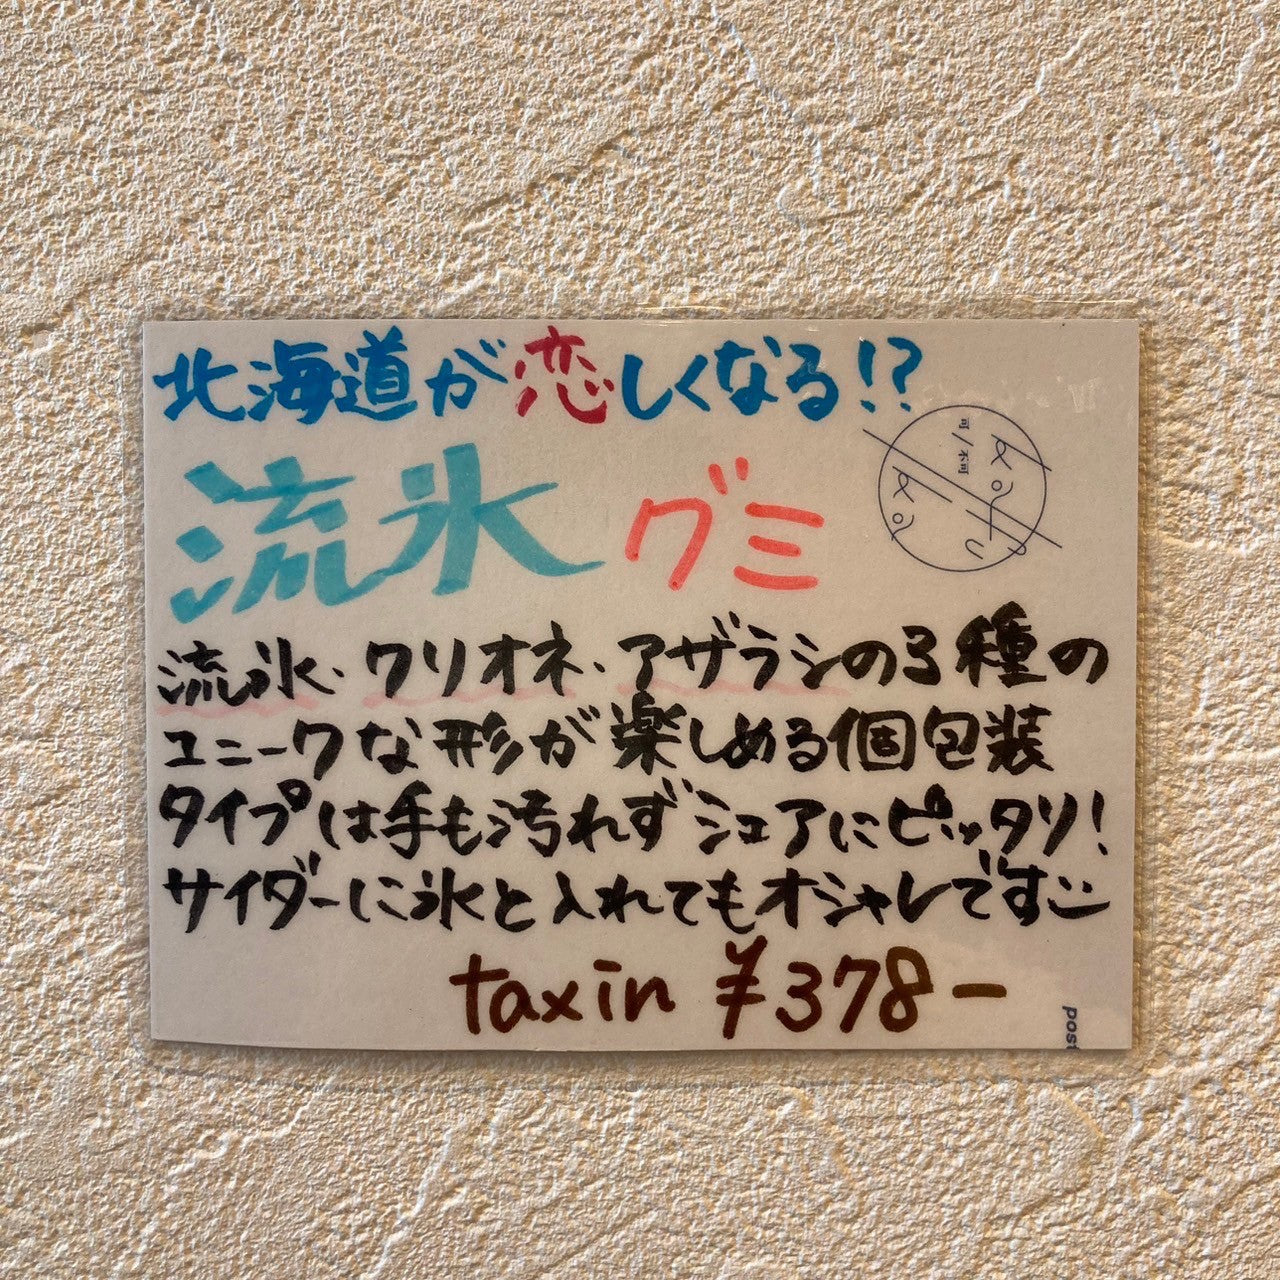 北海道が恋しくなる!?
流氷グミ
可/不可
流氷・クリオネ・アザラシの3種の
ユニークな形が楽しめる個包装
タイプは手も汚れずシェアにピッタリ!
サイダーに氷と入れてもオシャレです
taxin ¥378-
post